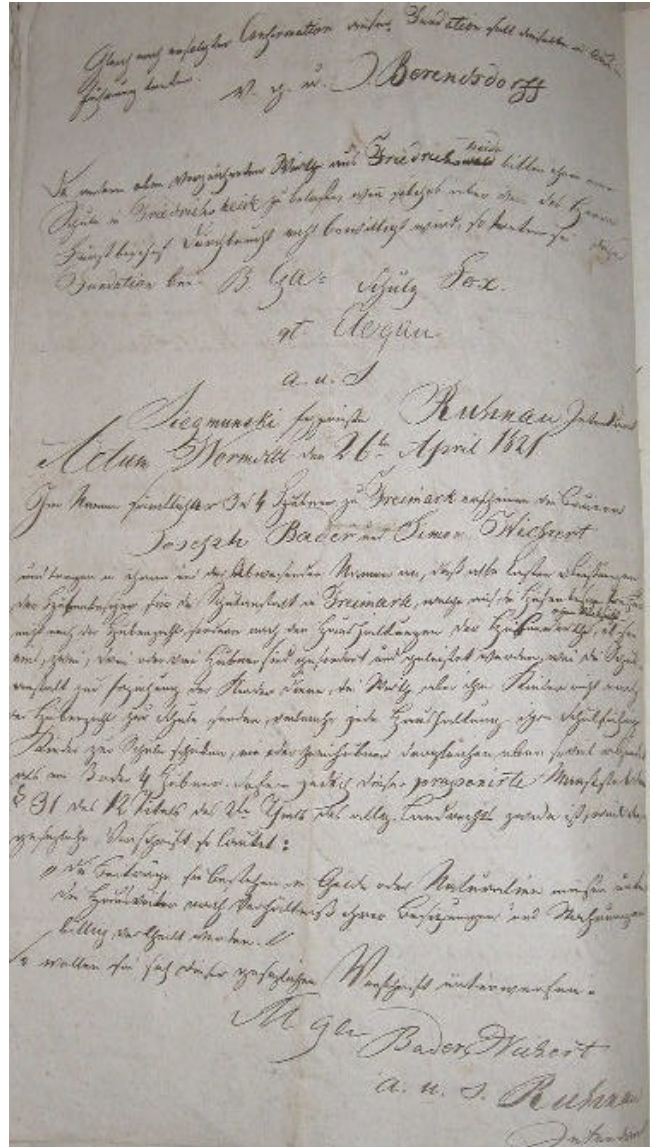 Gleich nach erfolgter Confirmation dieser Fundation soll dieselbe in Aus-
führung treten.
v. g. u. J. Berendsdorff
Die andern oben verzeichneten Wirthe aus Friedrichs heide bitten ihnen eine
Schule in Friedrichsheide zu belassen, wenn solches aber von des Herrn
Fürstbischof Durchlaucht nicht bewilligt wird, so treten sie dieser
Fundation bei. Schulz Fox.
a. u. S
Siegmunski Ruhnau Intendant
Actum Wormditt den 26ten April 1821
Im Namen sämmtlicher 3 & 4 Hübner zu Freimark erscheinen die Bauern
Joseph Bader und Simon Wichert
und tragen in ihrem und der Abwesenden Namen an, daß alle Lasten
der Hubenbesitzer für die Schulanstalt in Freimark, welche
nicht nach der Hubenzahl, sondern nach den Haushaltungen der
ein, zwei, drei oder vier Hübner sind gefordert und geleistet werden, weil die Schul-
anstalt zur Erziehung der Kinder diene, die Wirthe aber ihre Kinder nicht nach
der Hubenzahl zur Schule senden, vielmehr jede Haushaltung ihre Schulfähige
Kinder zur Schule schicken, ein oder zweihübner dergleichen eben so viel
als ein 3 oder 4 Hübner. Sofern jedoch dieser proponirte
§ 31 des 12 Titels des 2ten Theils des allg. Landrechts zuwider ist, weil die
gesetzliche Vorschrift so lautet:
die Beiträge sie bestehen in Gelde oder Naturalien müssen unter
die Hausväter nach Verhältniß ihrer Besitzungen und Nahrungen
billig vertheilt werden.
so wollen sie sich dieser gesetzlichen Vorschrift unterwerfen.
Bader Wichert
a. u. s. Ruhnau
Intendant